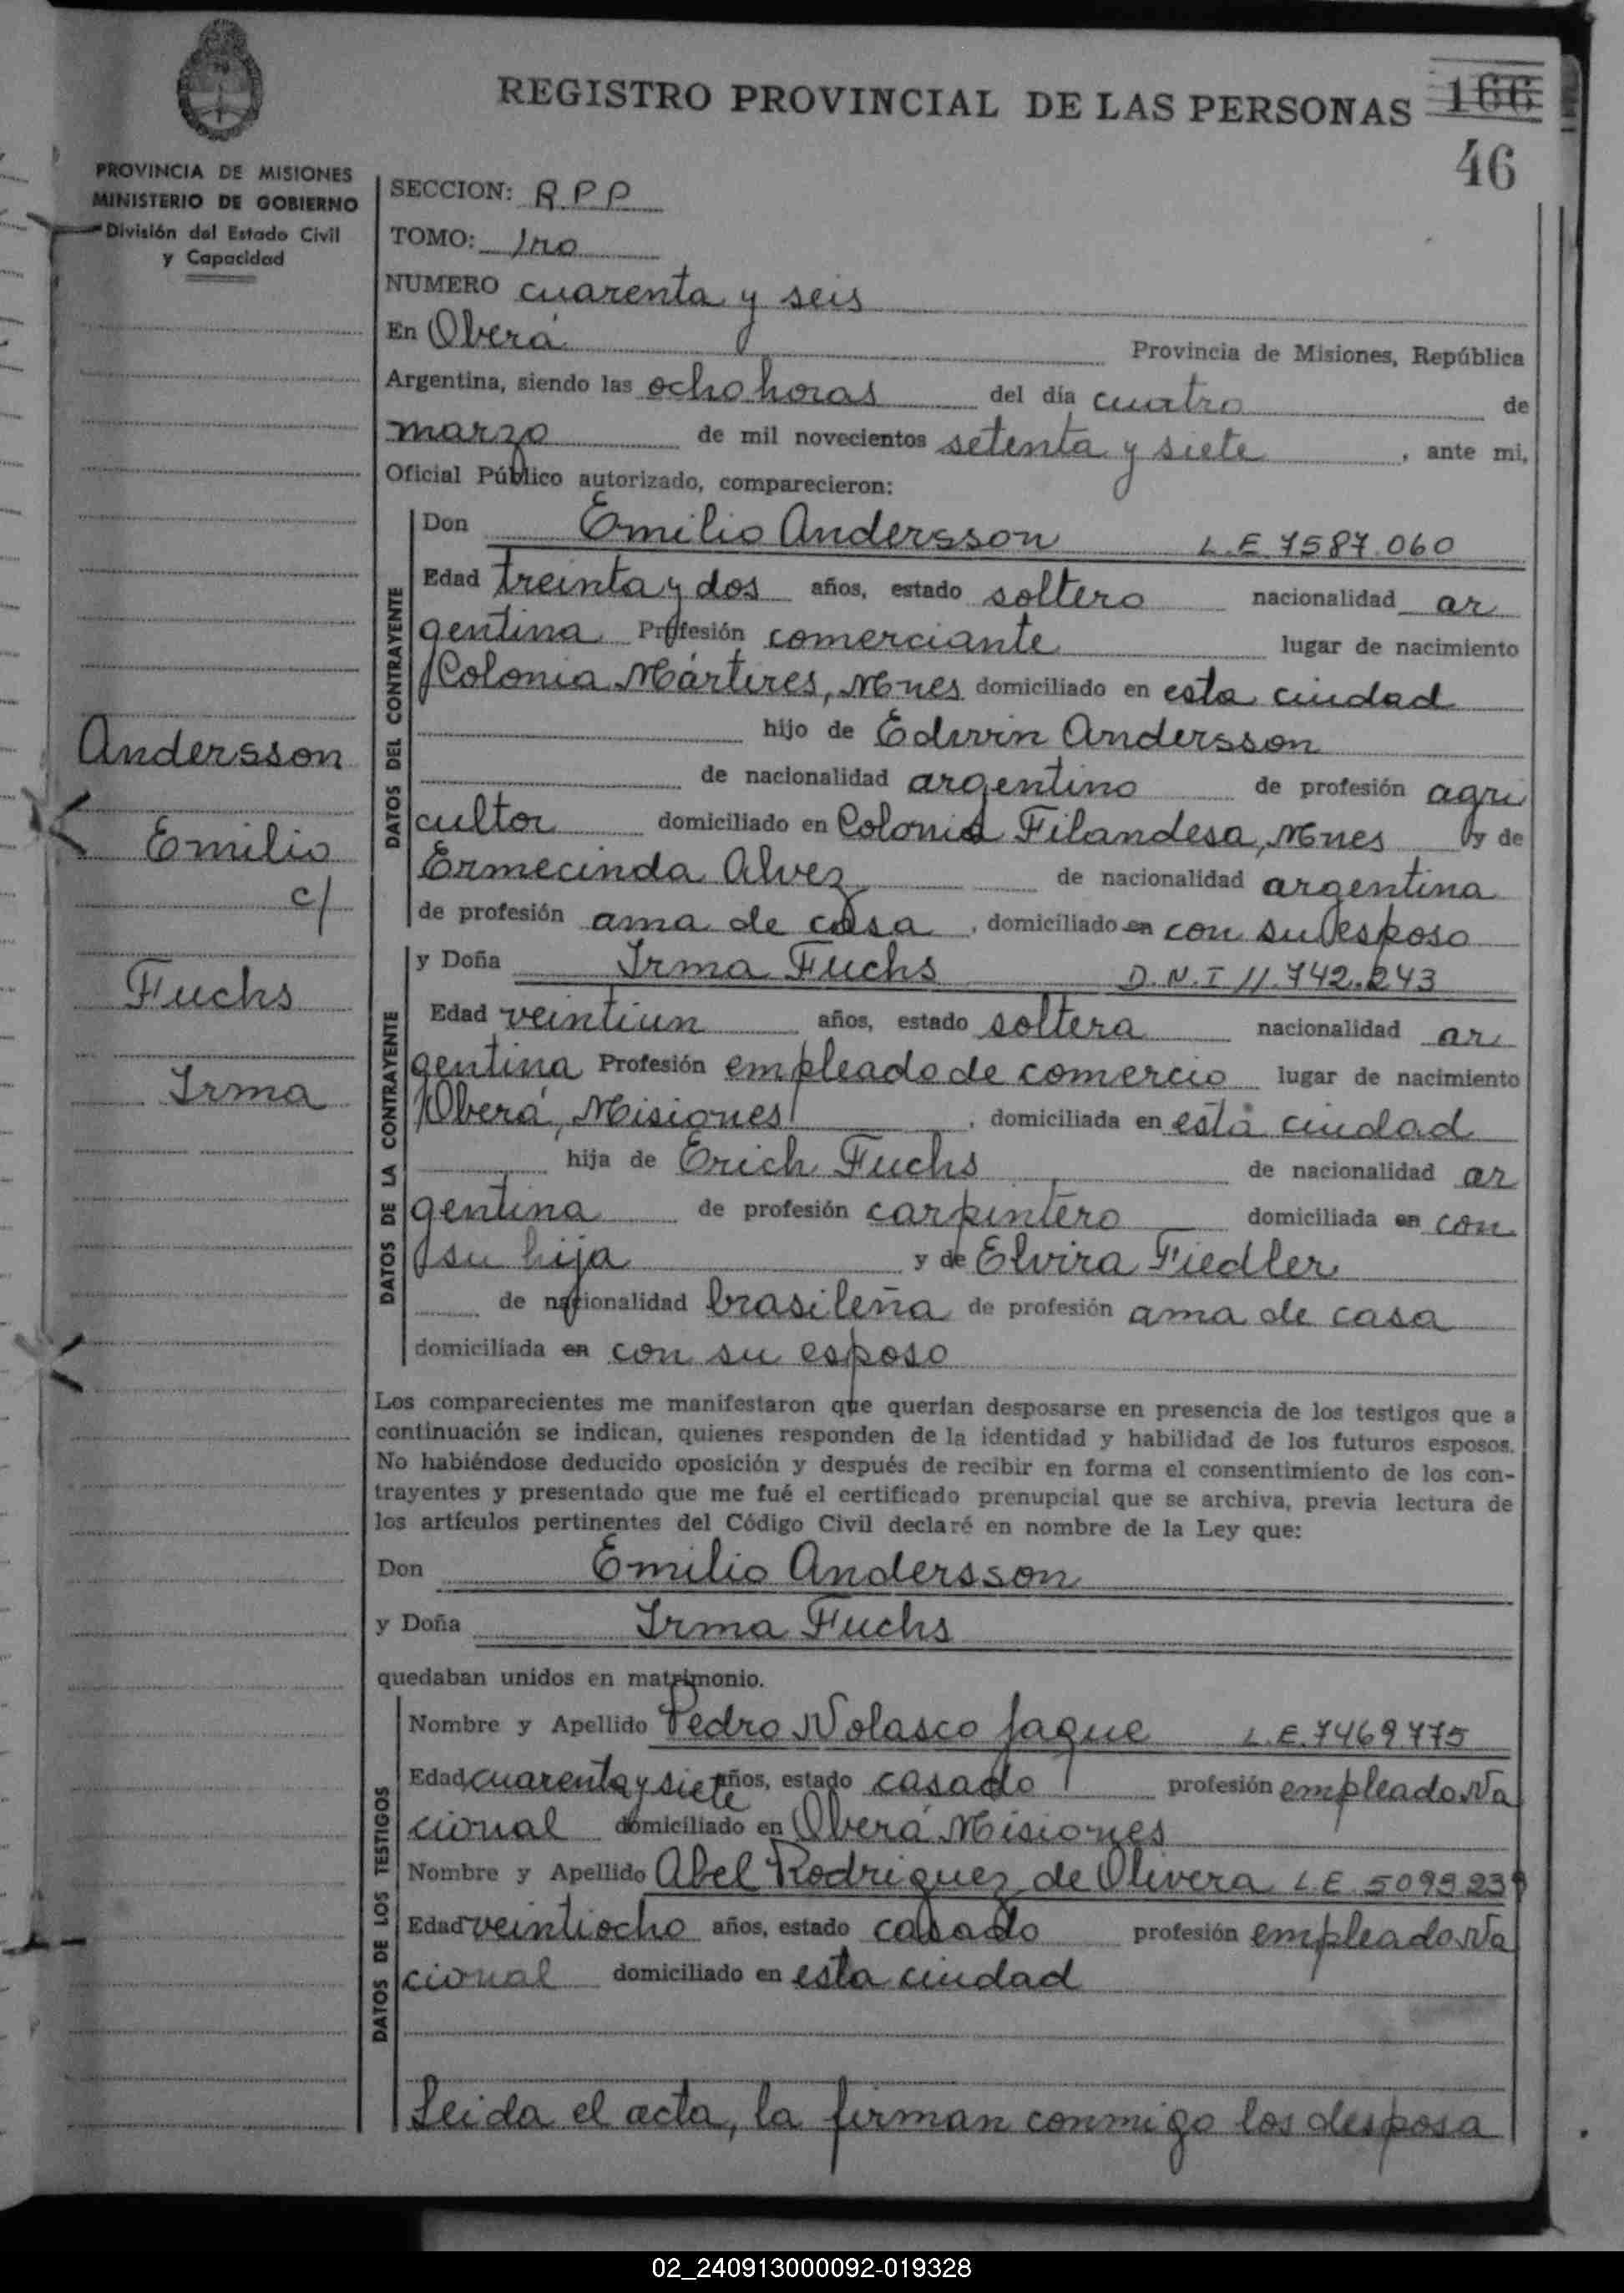 REGISTRO PROVINCIAL DE LAS PERSONAS 166
46
PROVINCIA DE MISIONES
MINISTERIO DE GOBIERNO
División del Estado Civil
y Capacidad
Andersson
Emilio
c/
Fuchs
Irma
SECCION: R.P.P
TOMO: 1ro
NUMERO cuarenta y seis
En Oberá Provincia de Misiones, República
Argentina, siendo las ocho horas del día cuatro de
marzo de mil novecientos setenta y siete, ante mi,
Oficial Público autorizado, comparecieron:
DATOS DEL CONTRAYENTE
Don Emilio Andersson L.E 7587.060
Edad treinta y dos años, estado soltero nacionalidad ar
gentina Profesión comerciante lugar de nacimiento
Colonia Mártires, Mnes domiciliado en esta ciudad
hijo de Edwin Andersson
de nacionalidad argentino de profesión agri
cultor domiciliado en Colonia Filandesa, Mnes y de
Ermecinda Alvez de nacionalidad argentina
de profesión ama de casa, domiciliado en con su esposo
DATOS DE LA CONTRAYENTE
y Doña Irma Fuchs D.N.I 11.742.243
Edad veintiun años, estado soltera nacionalidad ar
gentina Profesión empleado de comercio lugar de nacimiento
Oberá, Misiones, domiciliada en está ciudad
hija de Erich Fuchs de nacionalidad ar
gentina de profesión carpintero domiciliada en con
su hija y de Elvira Fiedler
de nacionalidad brasileña de profesión ama de casa
domiciliada en con su esposo
Los comparecientes me manifestaron que querían desposarse en presencia de los testigos que a
continuación se indican, quienes responden de la identidad y habilidad de los futuros esposos.
No habiéndose deducido oposición y después de recibir en forma el consentimiento de los con-
trayentes y presentado que me fué el certificado prenupcial que se archiva, previa lectura de
los artículos pertinentes del Código Civil declaré en nombre de la Ley que:
Don Emilio Andersson
y Doña Irma Fuchs
quedaban unidos en matrimonio.
DATOS DE LOS TESTIGOS
Nombre y Apellido Pedro Nolasco Jaque L.E.7469775
Edad cuarenta y siete años, estado casado profesión empleado Na
cional domiciliado en Oberá Misiones
Nombre y Apellido Abel Rodriguez de Olivera L.E 5093239
Edad veintiocho años, estado casado profesión empleado Na
cional domiciliado en esta ciudad
Leida el acta, la firman conmigo los desposa
02_240913000092-019328